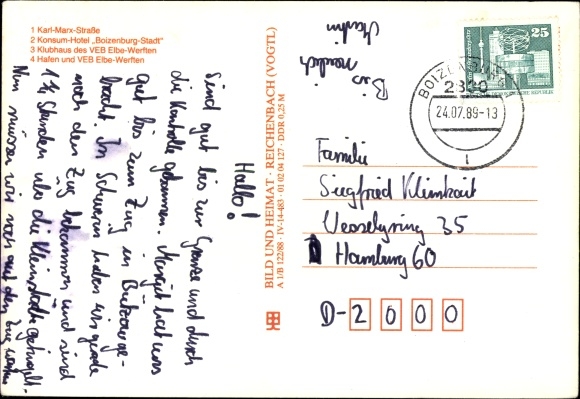 1 Karl-Marx-Straße
2 Konsum-Hotel „Boizenburg-Stadt“
3 Klubhaus des VEB Elbe-Werften
4 Hafen und VEB Elbe-Werften
Hallo!
Sind gut bis zur Grenze und durch
die Kontrolle gekommen. hat uns
gut bis zum Zug in ge-
bracht. In Schwerin haben wir gerade
noch den Zug bekommen und sind
1 ¾ Stunden über die
Nun müssen wir noch auf den Zug warten
Bis
Martin
BILD UND HEIMAT · REICHENBACH (VOGTL)
A 1/B 122/88 · IV-14-483 · 01 02 04 127 · DDR 0,25 M
25
BOIZENBURG
2830
24.07.89-13
1
Familie
Siegfried Klimkait
Veoselyring 35
Hamburg 60
D-2000